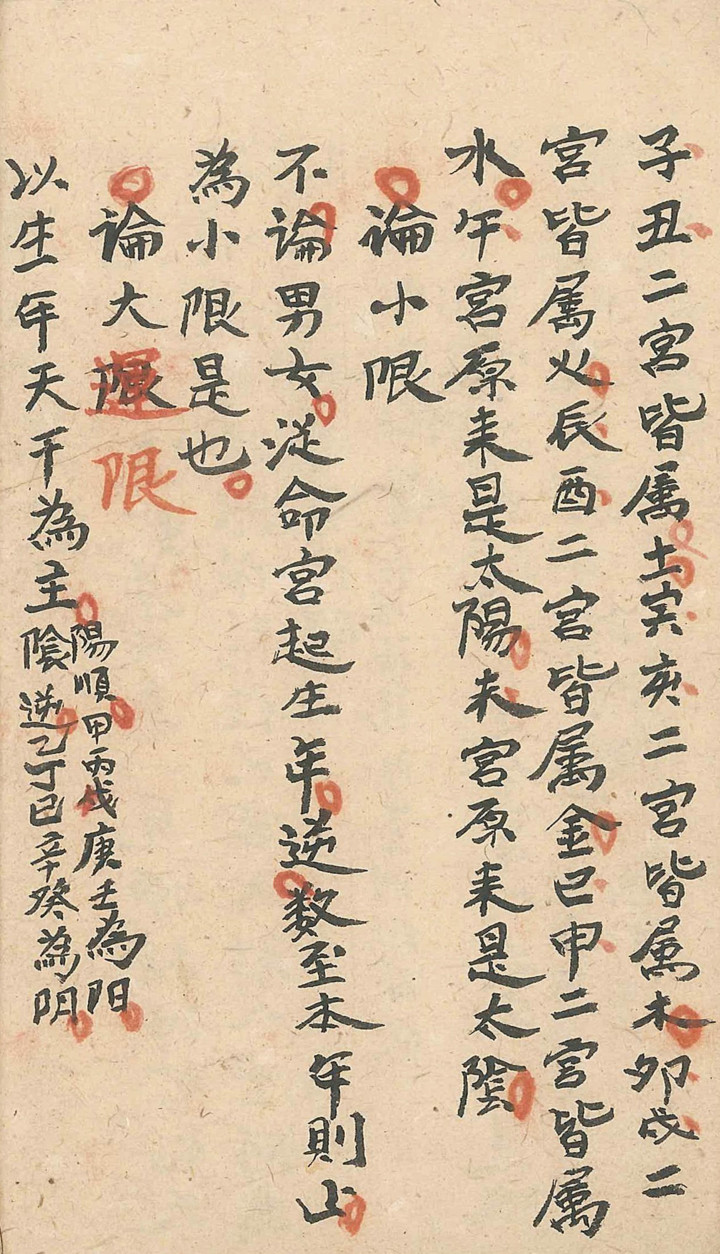 子丑二宮皆属土寅亥二宮皆属木卯戍二
宮皆属火辰酉二宮皆属金巳申二宮皆属
水午宮原来是太陽未宮原来是太陰
論小限
不論男女從命宮起生年逆数至本年則止
為小限是也
論大限
運限
以生年天干為主
陽順甲丙戊庚壬為阳
陰逆乙丁巳辛癸為阴